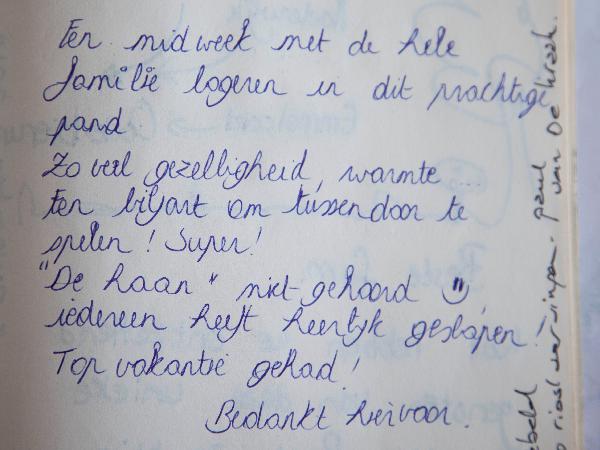 Een midweek met de hele
familie logeren in dit prachtige
pand
Zo veel gezelligheid, warmte ...
Een biljart om tussendoor te
spelen! Super!
"De haan" niet gehoord
iedereen heeft heerlijk geslapen!
Top vakantie gehad!
Bedankt hiervoor.
paul
van De